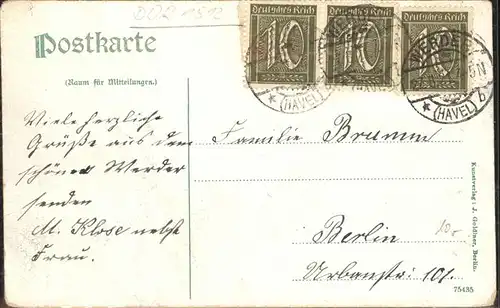 DOR 1512
Postkarte
(Raum für Mitteilungen.)
Deutsches Reich
10
Deutsches Reich
10
Deutsches Reich
WERDER
* (HAVEL)
* (HAVEL) b
Viele herzliche
Grüße aus dem
schönen Werder
senden
M. Klose nebst
Frau.
Familie Brumm
Berlin
Urbanstr. 101.
Kunstverlag: J. Goldiner, Berlin.
75435